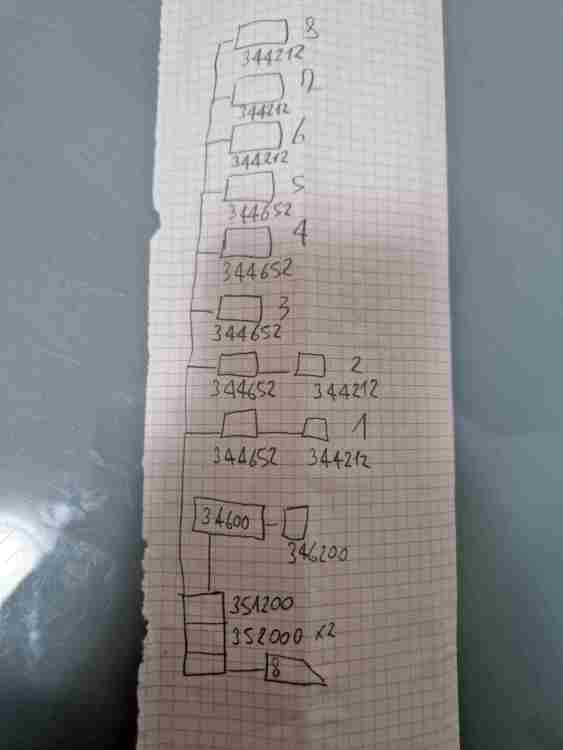 8
344212
7
344212
6
344212
5
344652
4
344652
3
344652
2
344652 344212
1
344652 344212
34600
346200
351200
352000 x2
8